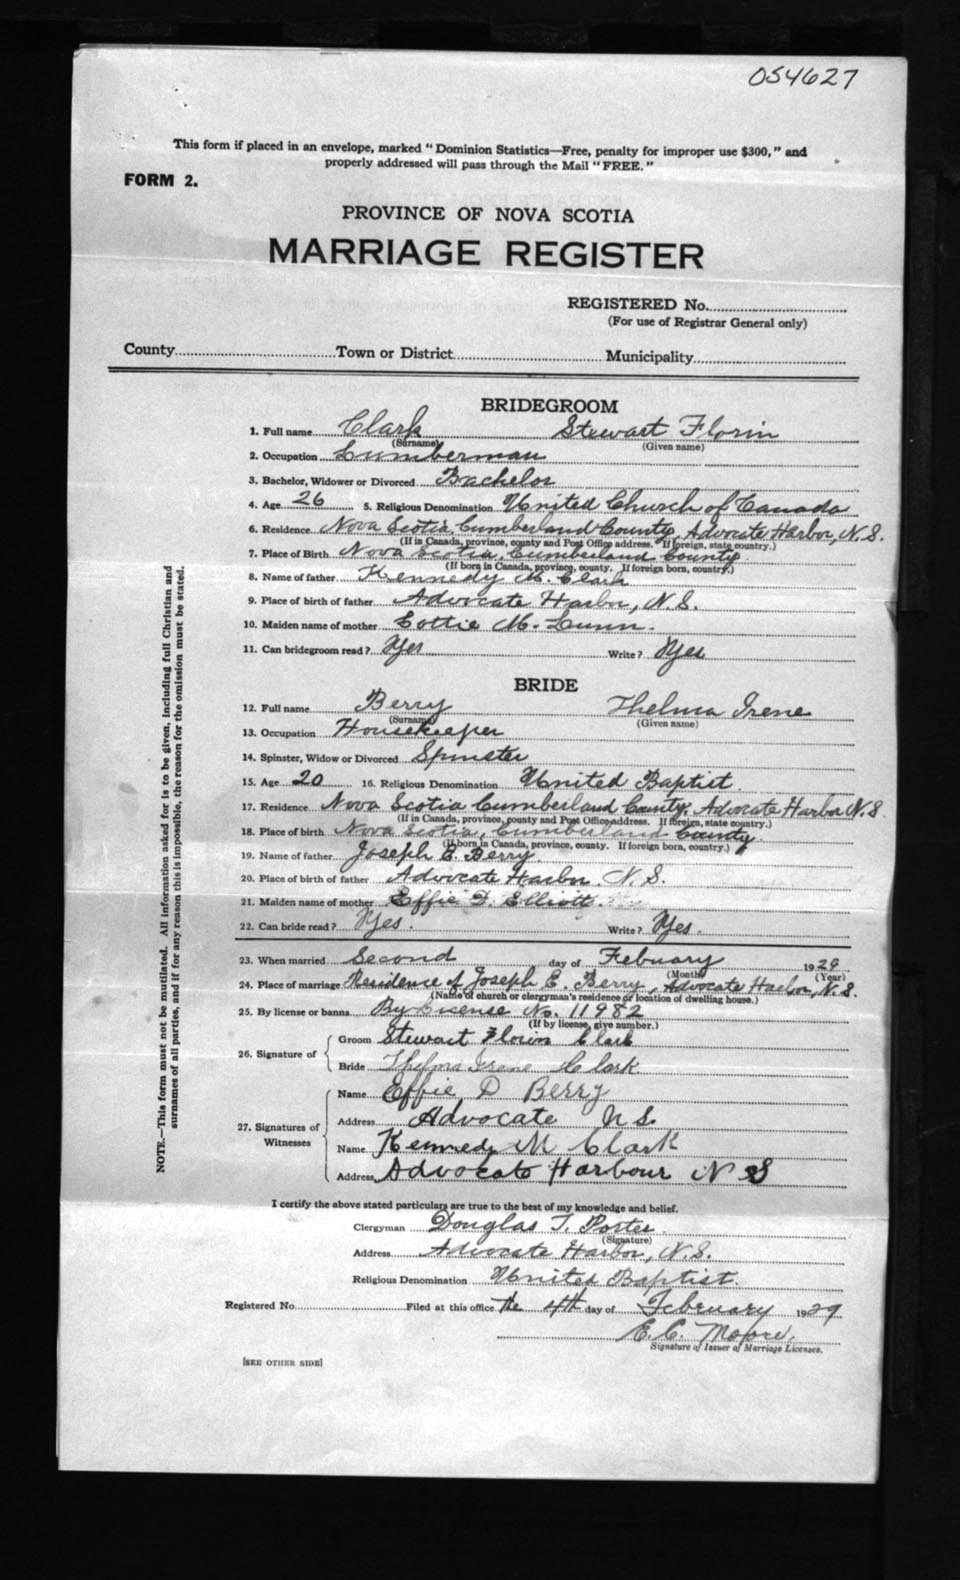 054627
This form if placed in an envelope, marked "Dominion Statistics—Free, penalty for improper use $300," and
properly addressed will pass through the Mail "FREE."
FORM 2.
PROVINCE OF NOVA SCOTIA
MARRIAGE REGISTER
REGISTERED No.
(For use of Registrar General only)
County Town or District Municipality
BRIDEGROOM
1. Full name Clark Stewart Florin
(Surname) (Given name)
2. Occupation Lumberman
3. Bachelor, Widower or Divorced Bachelor
4. Age 26 5. Religious Denomination United Church of Canada
6. Residence Nova Scotia, Cumberland County, Advocate Harbor, N.S.
(If in Canada, province, county and Post Office address. If foreign, state country.)
7. Place of Birth Nova Scotia, Cumberland County
(If born in Canada, province, county. If foreign born, country.)
8. Name of father Kennedy M. Clark
9. Place of birth of father Advocate Harbor, N.S.
10. Maiden name of mother Lottie M. Lunn.
11. Can bridegroom read? Yes Write? Yes
BRIDE
12. Full name Berry Thelma Irene
(Surname) (Given name)
13. Occupation Housekeeper
14. Spinster, Widow or Divorced Spinster
15. Age 20 16. Religious Denomination United Baptist.
17. Residence Nova Scotia Cumberland County, Advocate Harbor N.S.
(If in Canada, province, county and Post Office address. If foreign, state country.)
18. Place of birth Nova Scotia, Cumberland County.
(If born in Canada, province, county. If foreign born, country.)
19. Name of father Joseph E. Berry.
20. Place of birth of father Advocate Harbor. N.S.
21. Maiden name of mother Effie D. Elliott.
22. Can bride read? Yes. Write? Yes.
23. When married Second day of February 1929
(Month) (Year)
24. Place of marriage Residence of Joseph E. Berry, Advocate Harbor, N.S.
(Name of church or clergyman's residence or location of dwelling house.)
25. By license or banns By License No. 11982
(If by license, give number.)
26. Signature of
Groom Stewart Florin Clark
Bride Thelma Irene Clark
27. Signatures of Witnesses
Name Effie D Berry
Address Advocate N.S.
Name Kennedy M Clark
Address Advocate Harbour N S
I certify the above stated particulars are true to the best of my knowledge and belief.
Clergyman Douglas T. Porter.
(Signature)
Address Advocate Harbor, N.S.
Religious Denomination United Baptist.
Registered No. Filed at this office the 4th day of February 1929
E. C. Moore.
Signature of Issuer of Marriage Licenses.
[SEE OTHER SIDE]
NOTE.—This form must not be mutilated. All information asked for is to be given, including full Christian and
surnames of all parties, and if for any reason this is impossible, the reason for the omission must be stated.